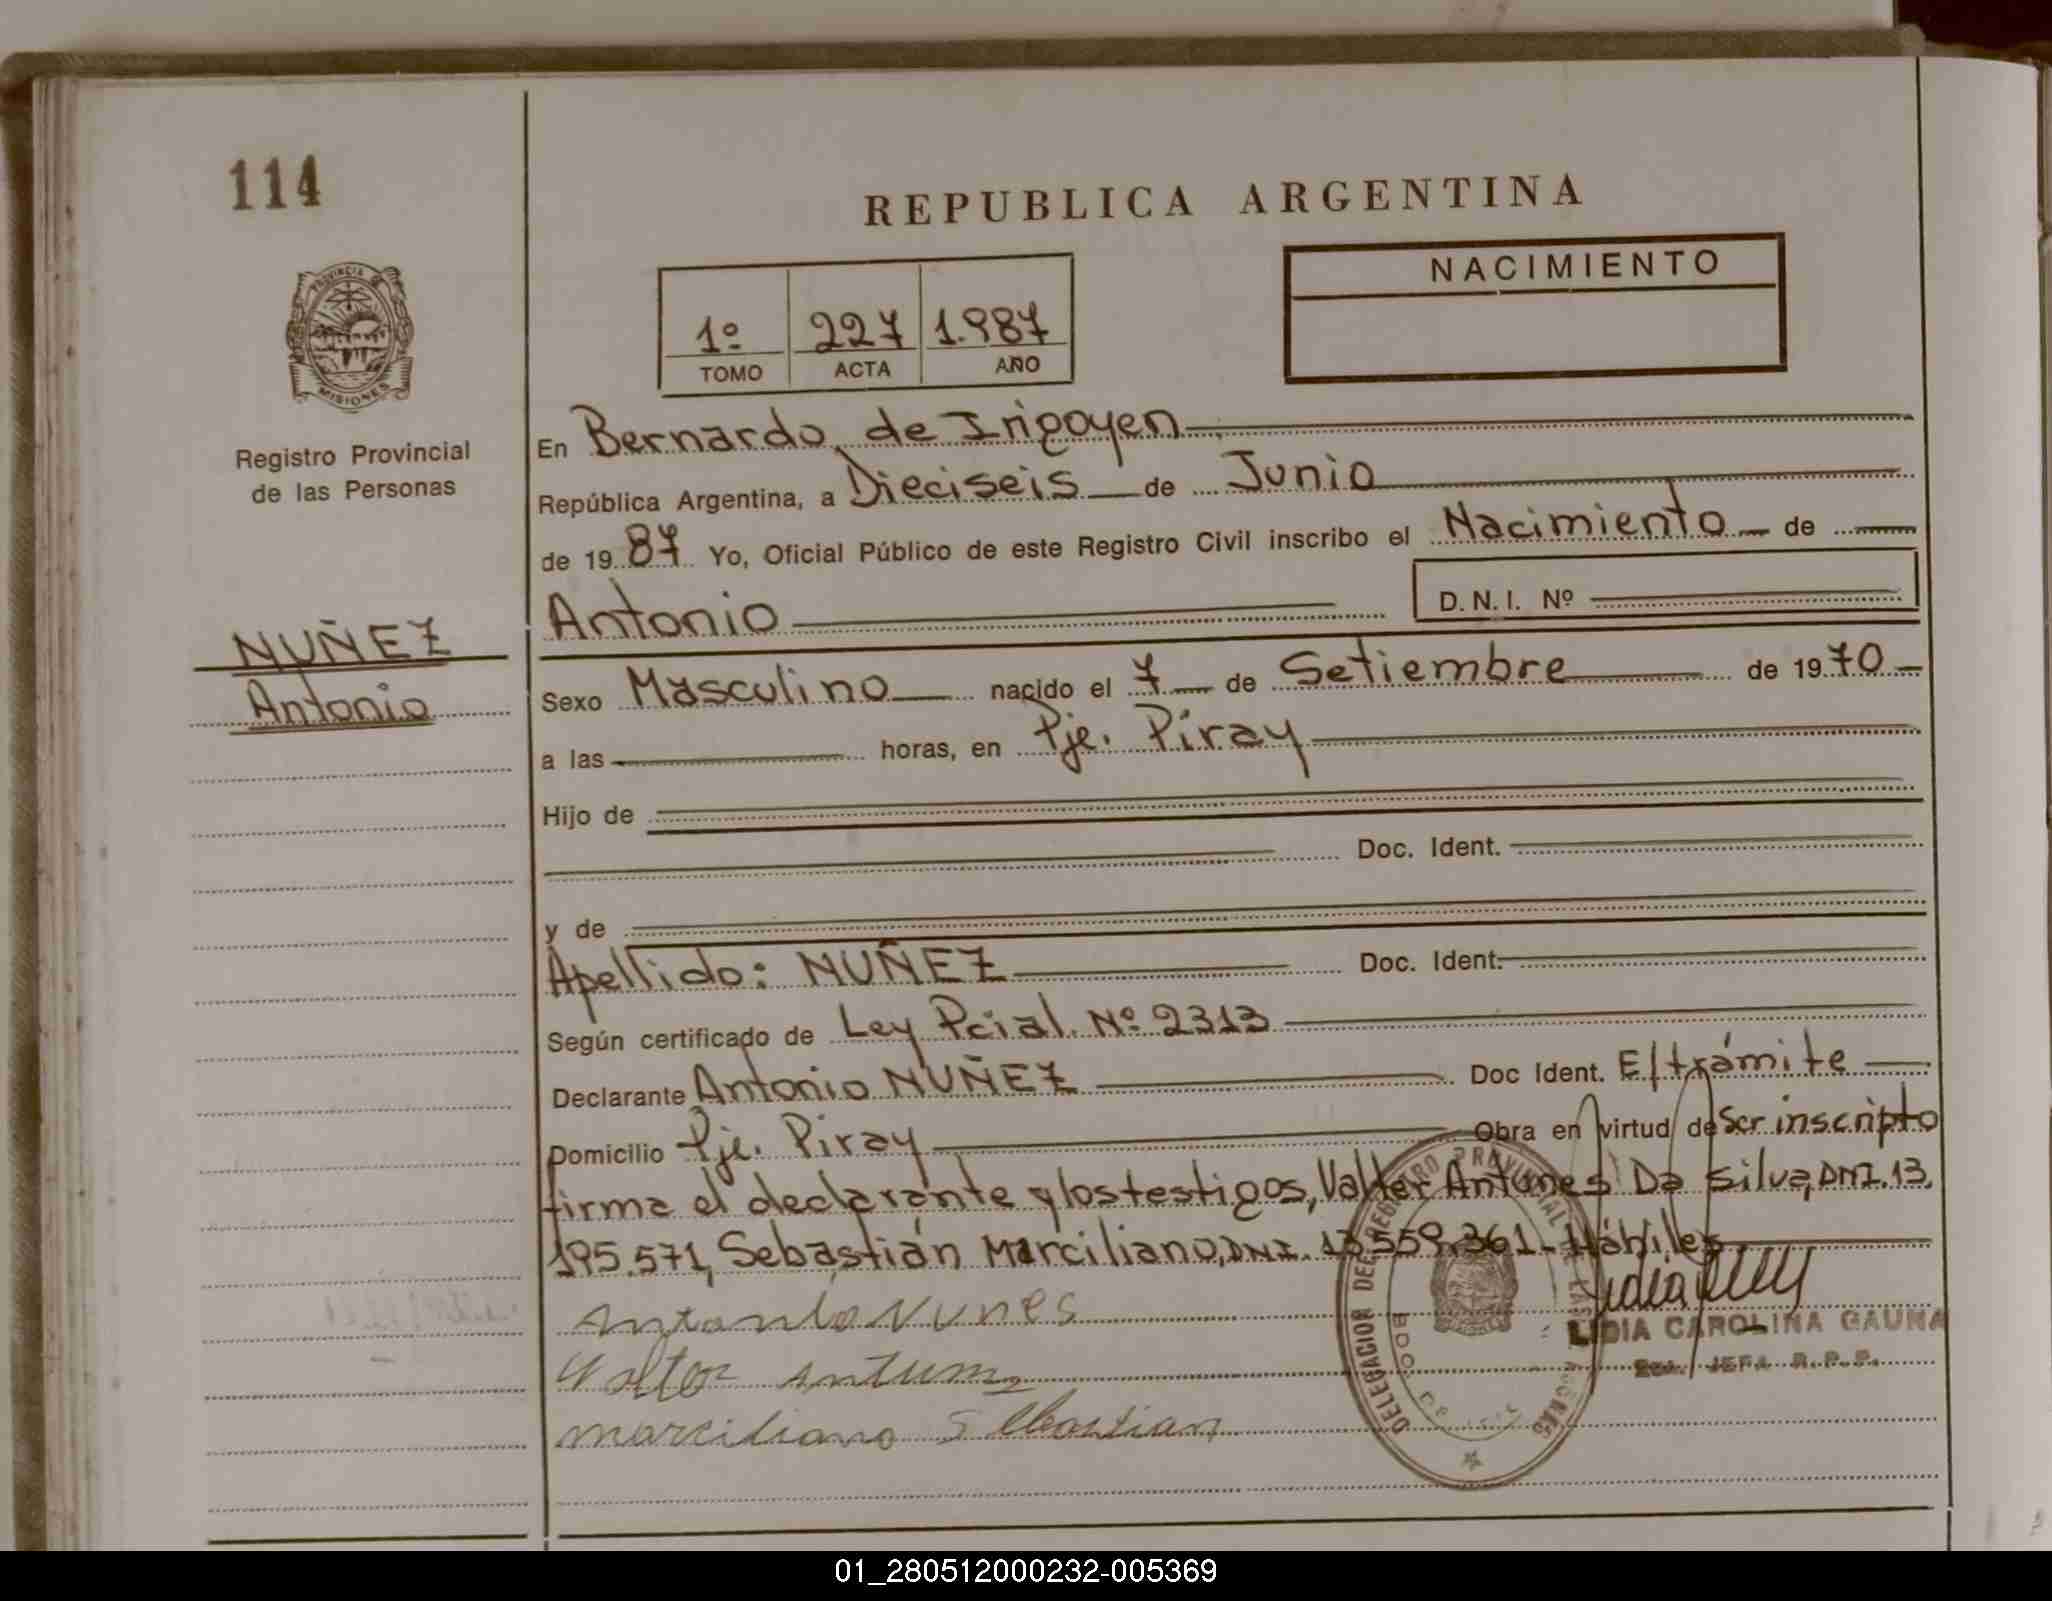 114
REPUBLICA ARGENTINA
NACIMIENTO
1º 227 1.987
TOMO ACTA AÑO
PROVINCIA DE
MISIONES
Registro Provincial
de las Personas
NUÑEZ
Antonio
En Bernardo de Irigoyen
República Argentina, a Dieciseis de Junio
de 1987 Yo, Oficial Público de este Registro Civil inscribo el Nacimiento de
Antonio D.N.I. Nº
Sexo Masculino nacido el 7 de Setiembre de 1970
a las horas, en Pje. Piray
Hijo de
Doc. Ident.
y de
Apellido: NUÑEZ Doc. Ident.
Según certificado de Ley Pcial. Nº 2313
Declarante Antonio NUÑEZ Doc Ident. E/trámite
Domicilio Pje. Piray Obra en virtud de Ser inscripto
firma el declarante y los testigos, Valter Antunes Da Silva, DNI. 13.
195.571, Sebastián Marciliano, DNI. 13.559.361 - Hábiles
Antonio Nunes
Valtor Antunes
marciliano Sebastian
DELEGACION DEL REGISTRO PROVINCIAL DE LAS PERSONAS
BDO. DE
LIDIA CAROLINA GAUNA
JEFA R.P.P.
01_280512000232-005369